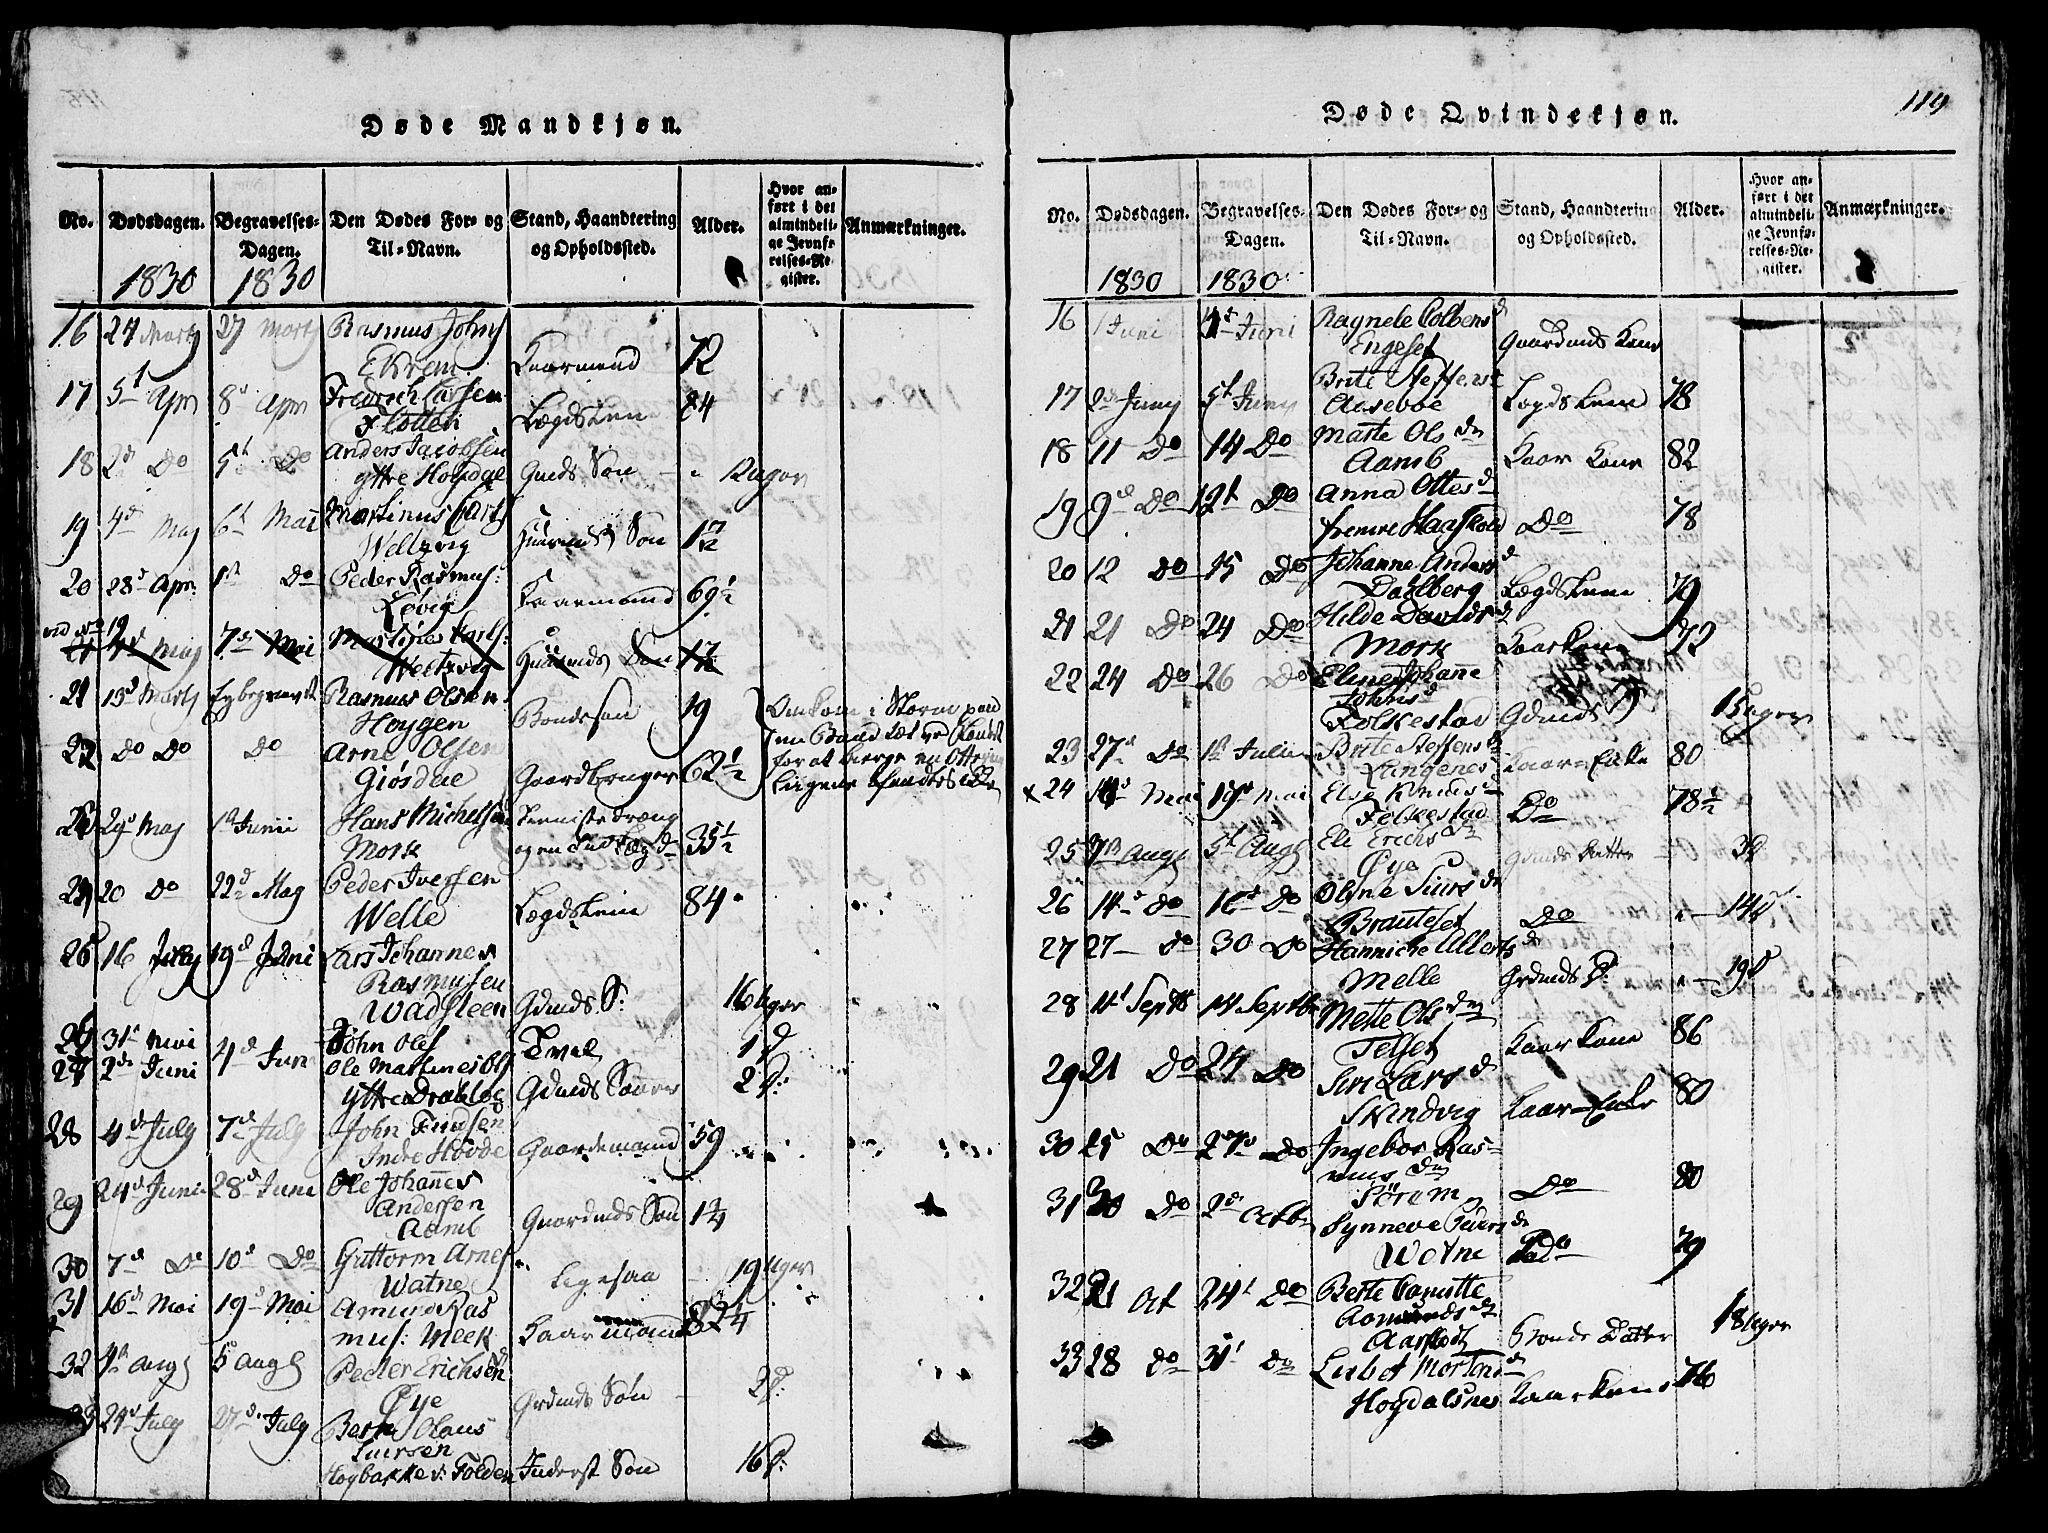 Døde Mandkjøn.
No. Dødsdagen. Begravelses-Dagen. Den Dødes For- og Til-Navn. Stand, Haandtering og Opholdssted. Alder. Hvor anført i det almindelige Jevnførelses-Register. Anmærkninger.
1830 1830
16 24 Marty 27 Marty Rasmus Johns
Ekrem Kaarmand 72
17 5t Apr 8d Apr Fredrich Larsen
Flotten Lægdslem 84
18 2d Do 5t Do Anders Jacobsen
yttre Hogdal Gmds Søn - " 12 uger
19 4d May 6t Mai Martinus Carls
Weltzvig Huusmds Søn 1 7/12
20 28d Apr: 1st Do Peder Rasmus:
Løvig Kaarmand 69 1/2
vid No 19
21 4d May 7d Mai Martines Karls:
Weltzvig Huusmds Søn 1 7/12
21 13d Marty Ey begravet Rasmus Olsen
Hoygen Bondesøn 19 Omkom i Storm paa
22 Do Do Do Arne Olsen
Giösdal Gaardbruger 62 1/2
for at bierge en Ottring
Ligene fandtes ikke
23 29d May 1st Junii Hans Michelsen
Mork 35 1/2
24 20 Do 22d May Peder Iversen
Welle Lægdslem 84
25 16 July 19d Juni Lars Johannes
Rasmussen
Wadsteen Gdmds S: 16 uger
26 31t Mai John Ols
27 2d Juni 4d Jun Ole Martines Ols 1 d
yttre Drabløs Gdmds Sønner 2 d:
28 4d July 7d July John Knudsen
Indre Hovde Gaardemand 59
29 24d Juni 28d Juni Ole Johannes
Andersen
Aamb Gaardmds Søn 1 1/4
30 7d Do 10d Do Guttorm Arnes
Watne Ligesaa - 19 uger
31 16d Mai 19d Mai Amund Ras
mus: Meek Kaarmand 82 1/4
32 4th Augs 5 Augs Peder Erichsen
Øye Grdmds Søn - 2 d:
33 24d July 27d July Bernt Olaus
Siursen
Hoybakke v: Folden Inderst Søn 16 d:
119
Døde Qvindekjøn.
No. Dødsdagen. Begravelses-Dagen. Den Dødes For- og Til-Navn. Stand, Haandtering og Opholdssted. Alder. Hvor anført i det almindelige Jevnførelses-Register. Anmærkninger.
1830 1830
16 1 Juni 4t Juni Ragnele Colbensd
Engeset Gaardmds Kone
17 2d Juny 5t Juny Brite Steffensd
Aaseboe Lægdslem 78
18 11 Do 14 Do Marte Olsdn
Aamb Kaar Kone 82
19 9d Do 12t Do Anna Ottesd
fremre Haaskold Do 78
20 12 Do 15 Do Johanne Andersd
Dahlberg Lægdslem 79
21 21 Do 24 Do Hilde Davidsd
Mork Kaarkone 72
22 24 Do 26 Do Eline Johanne
Johansd
Folkestad Gdmds 15 uger
23 27d Do 1st Julii Brite Steffensd
Lungenes Kaar-Enke 80
x 24 Mai 19d Mai Else Knudsd
Folkestad Do 78 1/2
25 Augs 5t Augs Eli Erichsdn
Øye Gdmds Datter 3 d
26 14d Do 16d Do Oline Siursdn
Brauteset Do " - 14 d
27 27 - Do 30 Do Hanniche Ullertsdn
Melle Grdmds D: " - 19 d
28 11t Septb 14 Septbr Mette Olsdn
Telset Kaar Kone 86
29 21 Do 24 Do Siri Larsd
Skindvig Kaar-Enke 80
30 25 Do 27d Do Ingebor Ras-
musdn
Sörem Do 80
31 30 Do 2d Octb Synneve Pedersdn
Watne Do 79
32 21 Oct 24t Do Berte Carnitte
Aamundsdt
Aarflodt Bonde Datter 18 uger
33 28 Do 31t Do Lisbet Mortensdn
Hogdalsnes Kaarkone 76